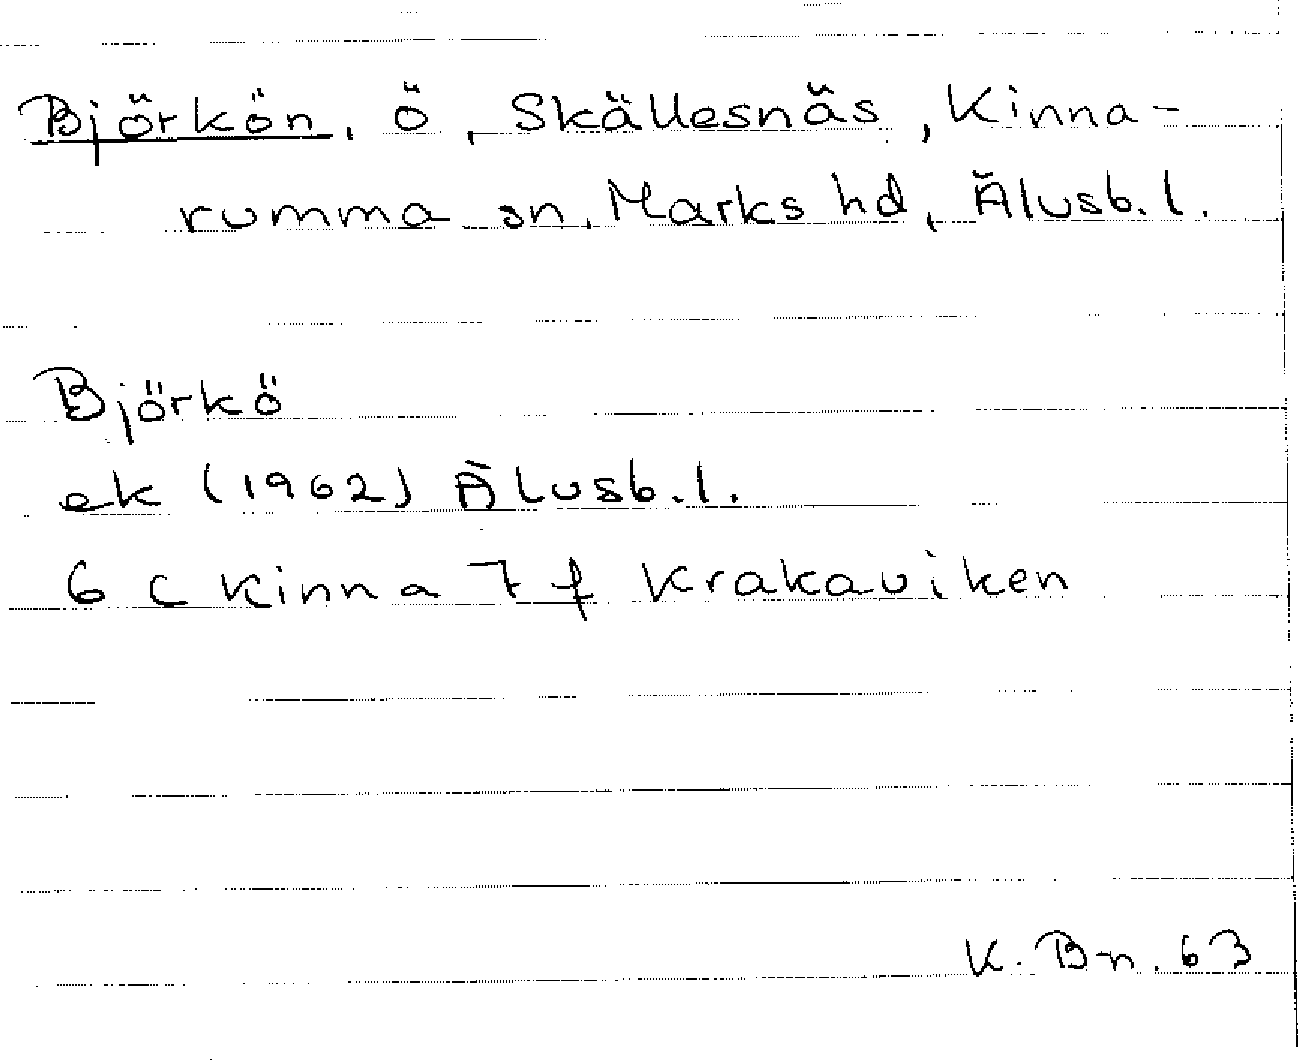 Björkön, ö, Skällesnäs, Kinna-
rumma sn, Marks hd, Älvsb. l.
Björkö
ek (1962) Älvsb. l.
6 C Kinna 7 f Krakaviken
K. Bn. 63